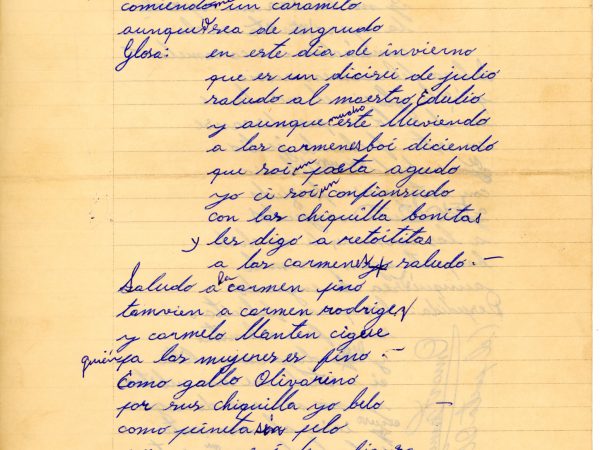 comiendome un caramelo
aunque sea de engrudo
Glosa: en este dia de invierno
que es un dicisei de julio
saludo al maestro, Edulio
y aunque mucho este lluviendo
a las carmenes boi diciendo
que soi un poeta agudo
yo ci soi un confiansudo
con las chiquilla bonitas
y les digo a retoititas
a las carmenes yo saludo.—
Saludo a la carmen pino
tamvien a carmen rodrigez
y carmelo Manten cigue
quién pa las mujeres es fino.—
Como gallo Olivarino
por sus chiquilla yo belo —
como peineta sin pelo